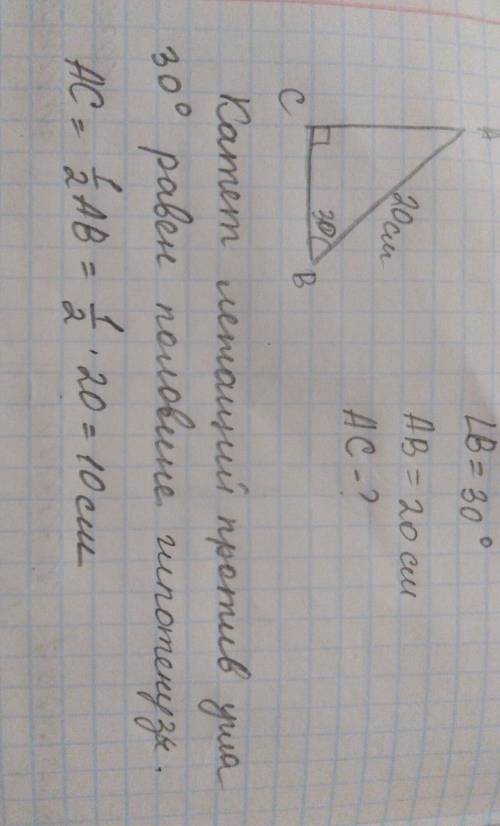 A
20см
C
30°
B
∠B = 30°
AB = 20 см
AC - ?
Катет лежащий против угла
30° равен половине гипотенузы.
AC = 1/2 AB = 1/2 · 20 = 10 см